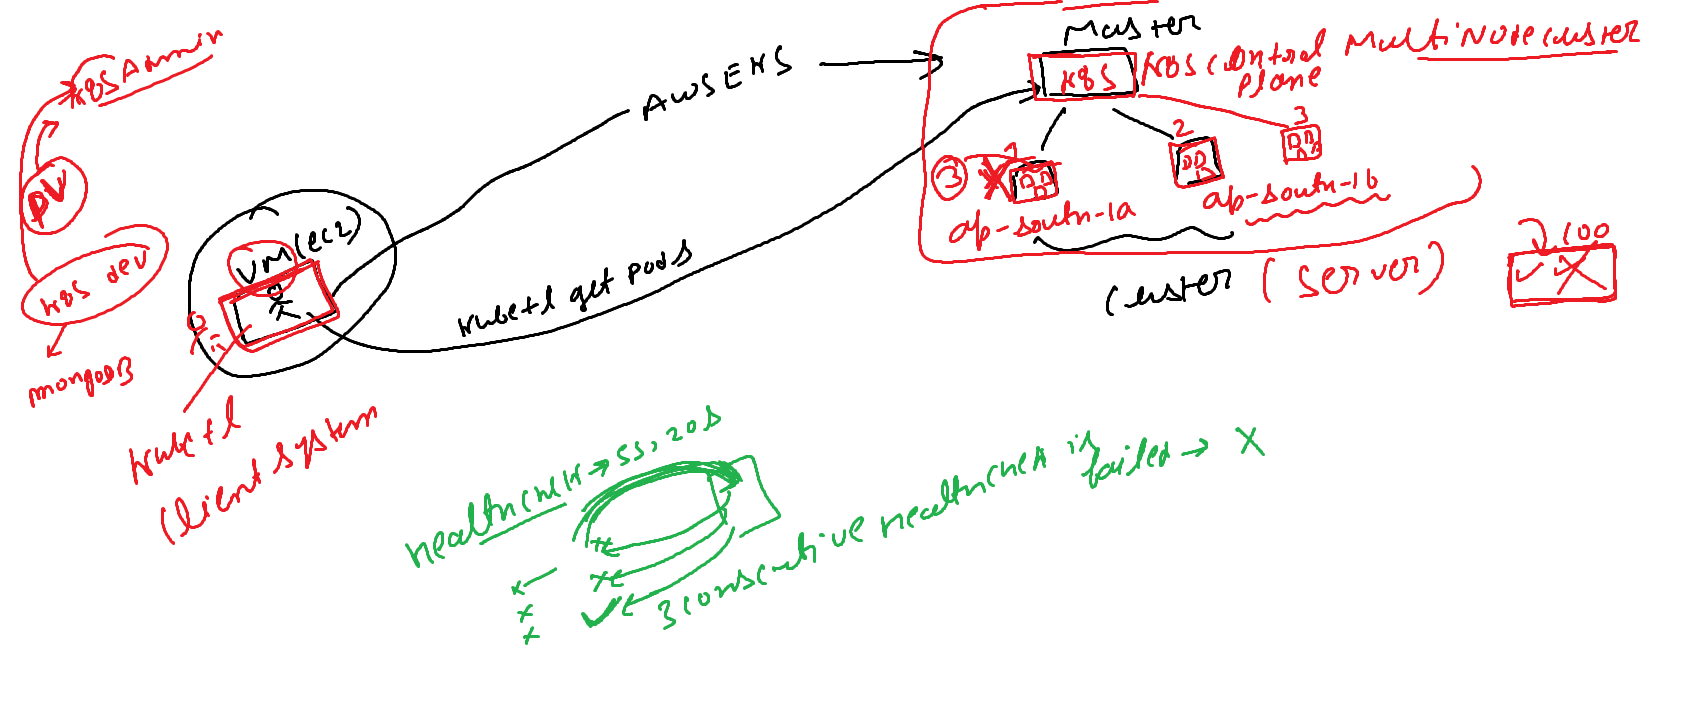 K8S Admin
PV
K8S dev
mongoDB
VM(EC2)
kubectl
Client system
AWS EKS
kubectl get pods
Master
K8S
K8S control plane
MultiNodecluster
1
2
3
3
ap-south-1a
ap-south-1b
Cluster (Server)
100
healthcheck → 5s, 20s
3 consecutive healthcheck is failed → X